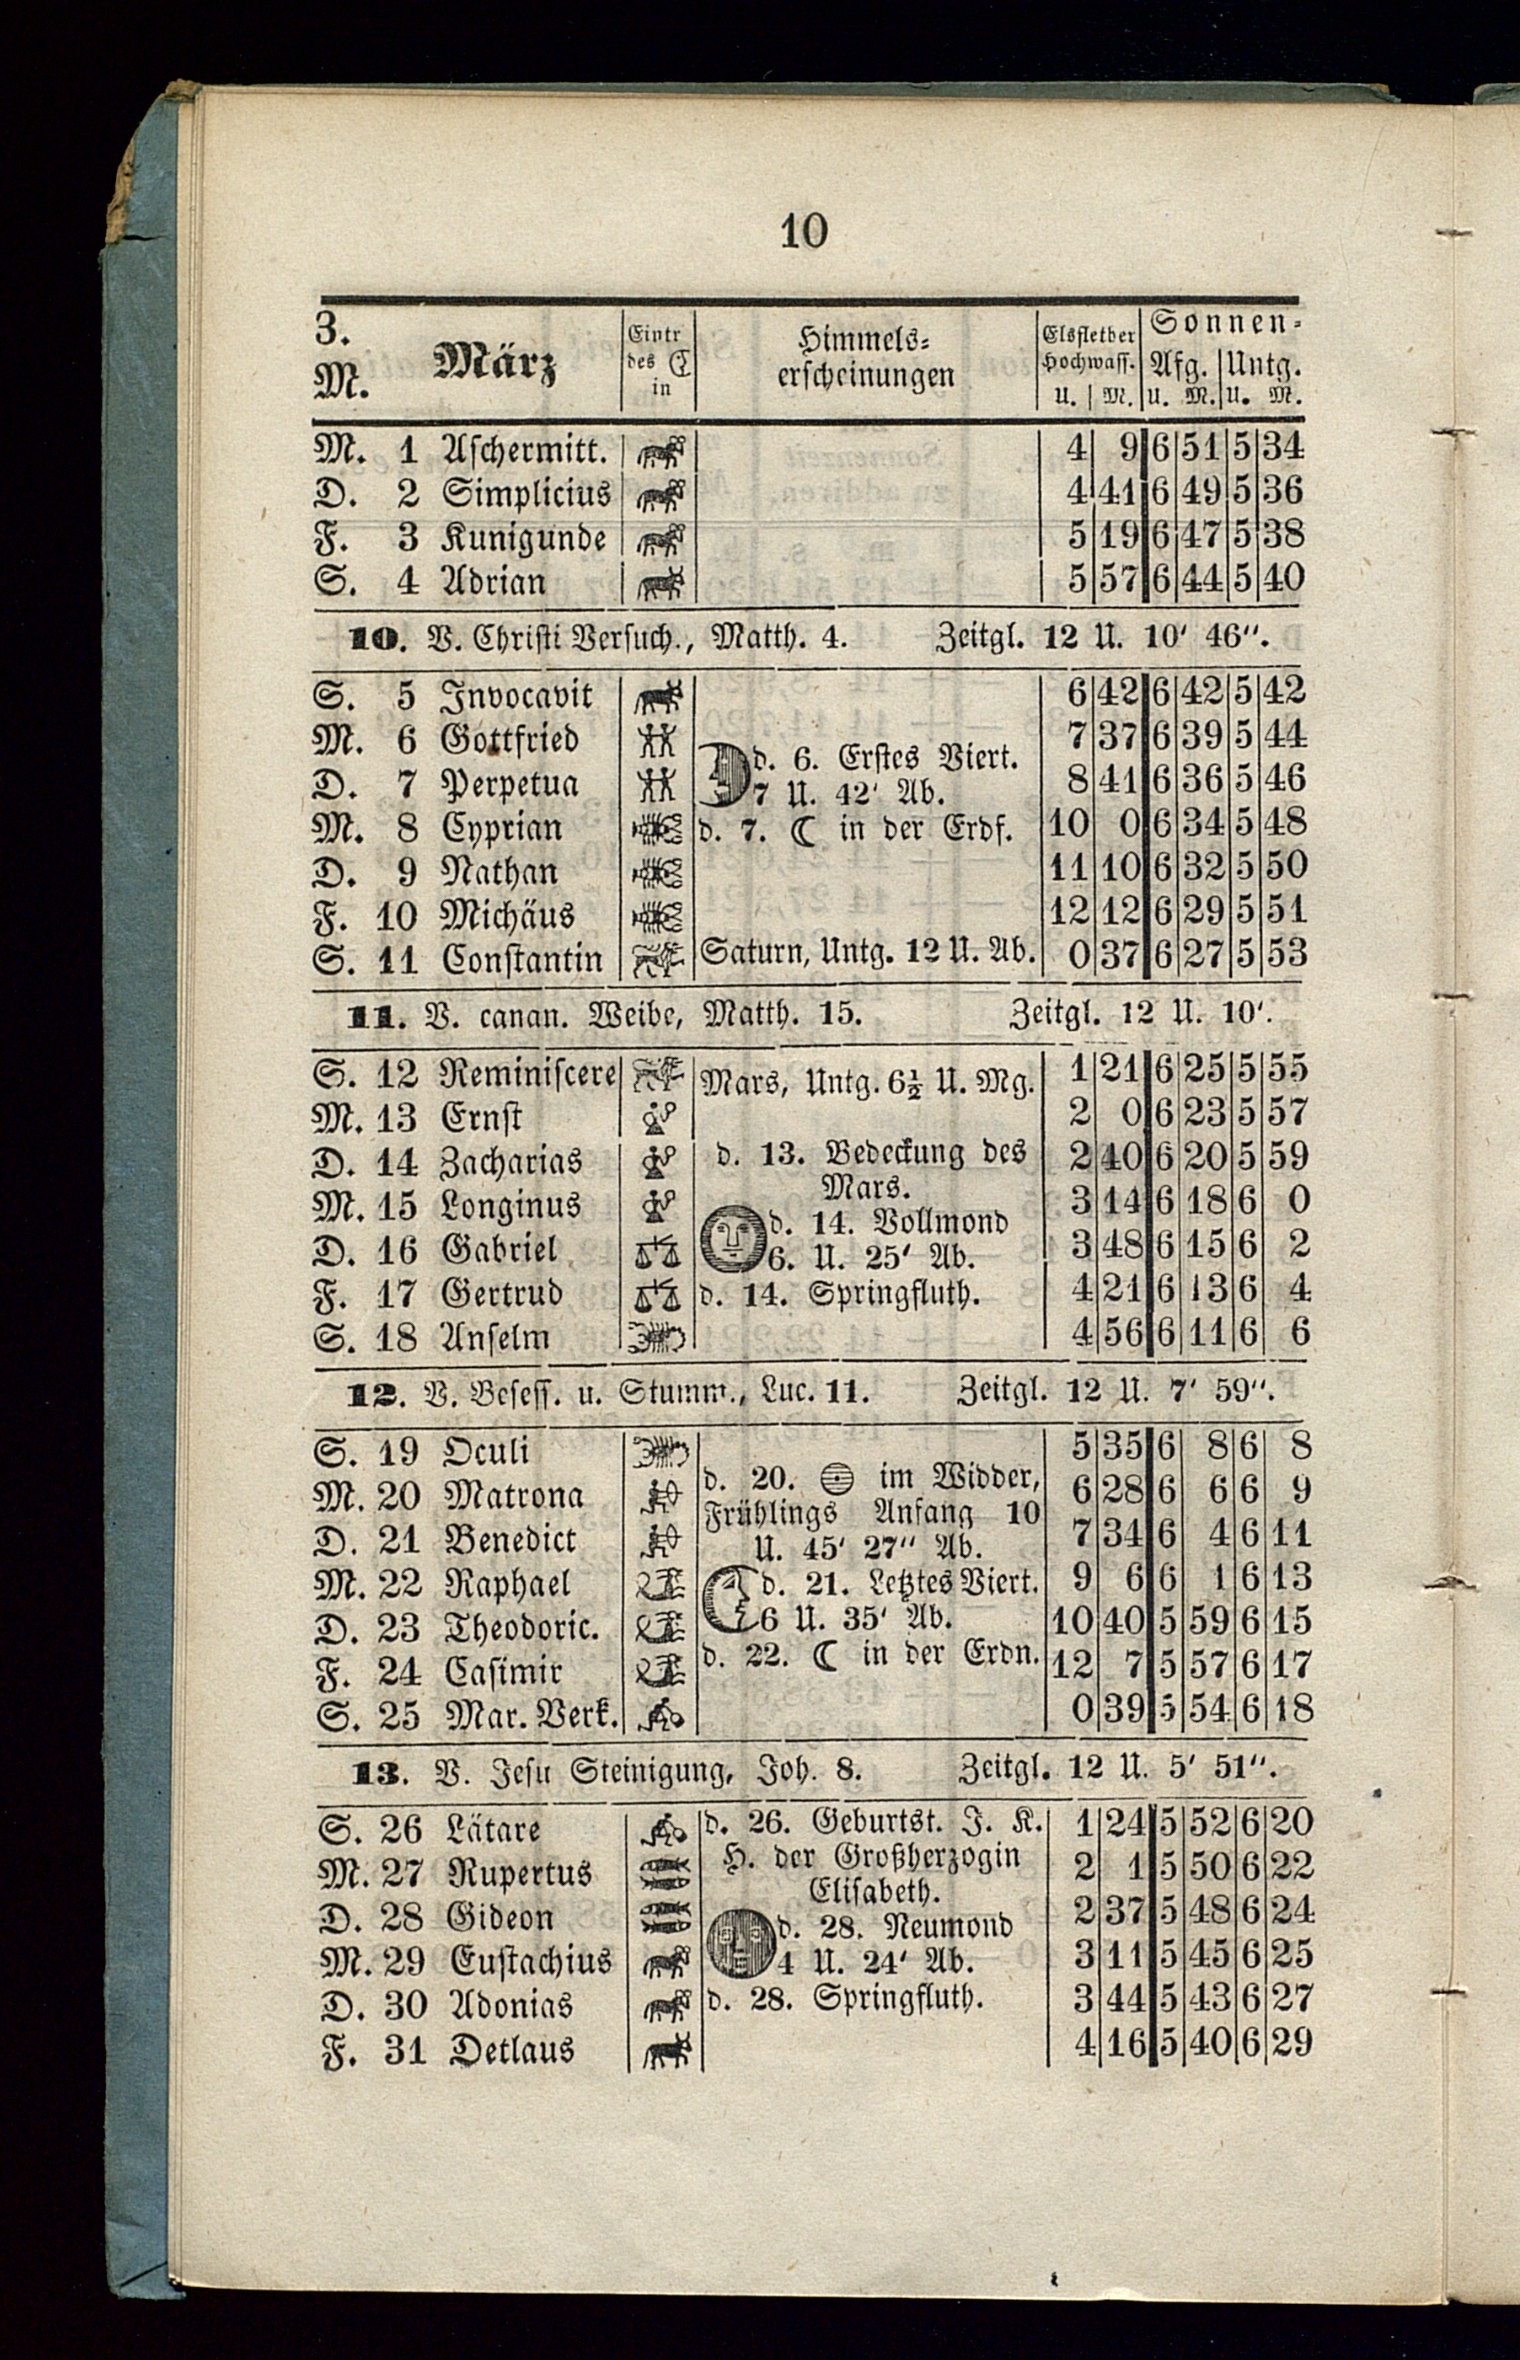 10
3.
M.
März
Eintr
des ☾
in
Himmels-
erscheinungen
Elsflether
Hochwass.
U. | M.
Sonnen-
Afg. | Untg.
U. M. | U. M.
M. 1 Aschermitt. 4 9 6 51 5 34
D. 2 Simplicius 4 41 6 49 5 36
F. 3 Kunigunde 5 19 6 47 5 38
S. 4 Adrian 5 57 6 44 5 40
10. V. Christi Versuch., Matth. 4. Zeitgl. 12 U. 10′ 46″.
S. 5 Invocavit 6 42 6 42 5 42
M. 6 Gottfried d. 6. Erstes Viert. 7 37 6 39 5 44
D. 7 Perpetua 7 U. 42′ Ab. 8 41 6 36 5 46
M. 8 Cyprian d. 7. ☾ in der Erdf. 10 0 6 34 5 48
D. 9 Nathan 11 10 6 32 5 50
F. 10 Michäus 12 12 6 29 5 51
S. 11 Constantin Saturn, Untg. 12 U. Ab. 0 37 6 27 5 53
11. V. canan. Weibe, Matth. 15. Zeitgl. 12 U. 10′.
S. 12 Reminiscere Mars, Untg. 6½ U. Mg. 1 21 6 25 5 55
M. 13 Ernst 2 0 6 23 5 57
D. 14 Zacharias d. 13. Bedeckung des 2 40 6 20 5 59
Mars.
M. 15 Longinus d. 14. Vollmond 3 14 6 18 6 0
D. 16 Gabriel 6. U. 25′ Ab. 3 48 6 15 6 2
F. 17 Gertrud d. 14. Springfluth. 4 21 6 13 6 4
S. 18 Anselm 4 56 6 11 6 6
12. V. Besess. u. Stumm., Luc. 11. Zeitgl. 12 U. 7′ 59″.
S. 19 Oculi 5 35 6 8 6 8
M. 20 Matrona d. 20. ☉ im Widder, 6 28 6 6 6 9
Frühlings Anfang 10
D. 21 Benedict U. 45′ 27″ Ab. 7 34 6 4 6 11
M. 22 Raphael d. 21. Letztes Viert. 9 6 6 1 6 13
D. 23 Theodoric. 6 U. 35′ Ab. 10 40 5 59 6 15
F. 24 Casimir d. 22. ☾ in der Erdn. 12 7 5 57 6 17
S. 25 Mar. Verk. 0 39 5 54 6 18
13. V. Jesu Steinigung, Joh. 8. Zeitgl. 12 U. 5′ 51″.
S. 26 Lätare d. 26. Geburtst. J. K. 1 24 5 52 6 20
M. 27 Rupertus H. der Großherzogin 2 1 5 50 6 22
Elisabeth.
D. 28 Gideon d. 28. Neumond 2 37 5 48 6 24
M. 29 Eustachius 4 U. 24′ Ab. 3 11 5 45 6 25
D. 30 Adonias d. 28. Springfluth. 3 44 5 43 6 27
F. 31 Detlaus 4 16 5 40 6 29